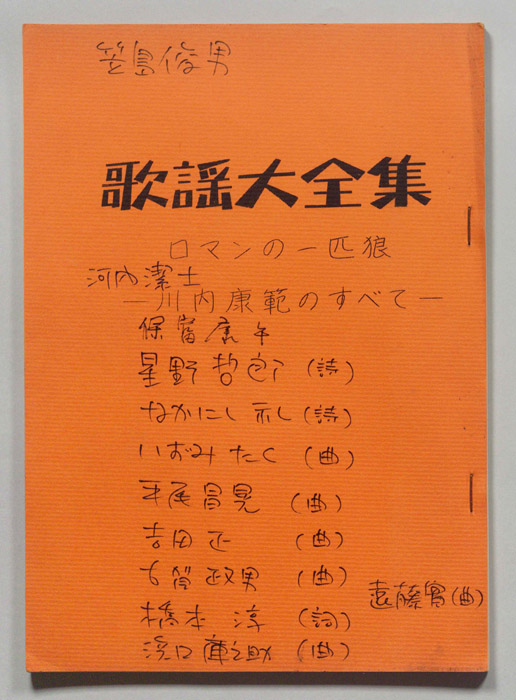 笠島俊男
歌謡大全集
ロマンの一匹狼
河内潔士
―川内康範のすべて―
保富康午
星野哲郎(詩)
なかにし礼(詩)
いずみたく(曲)
平尾昌晃(曲)
吉田正(曲)
古賀政男(曲)
遠藤實(曲)
橋本淳(詞)
浜口庫之助(曲)